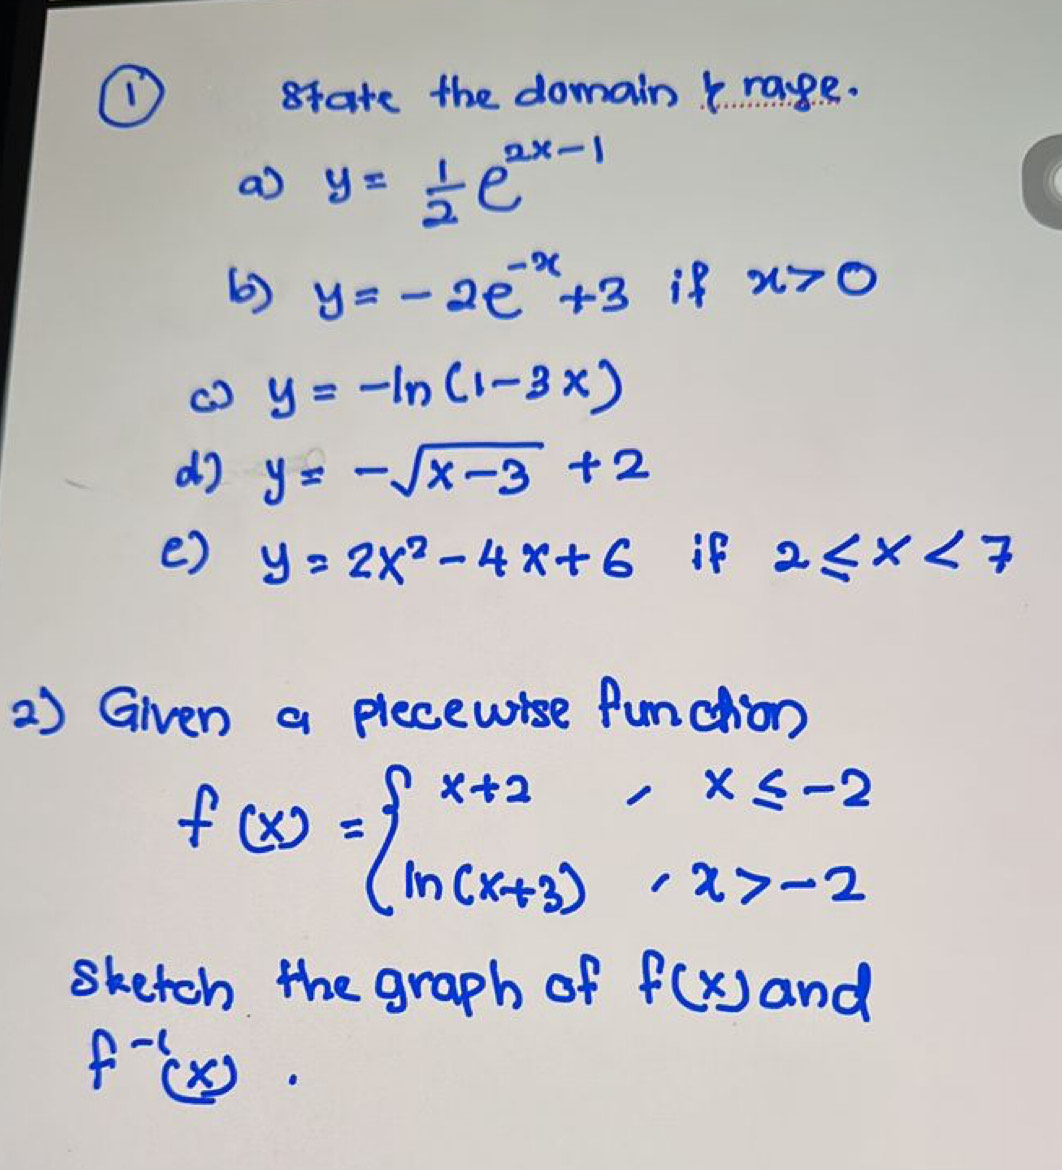 ① State the domain & rage.
a) y = 1/2 e^{2x-1}
b) y = -2e^{-x}+3 if x>0
c) y = -ln(1-3x)
d) y = -√(x-3) +2
e) y = 2x²-4x+6 if 2≤x<7
2) Given a piecewise function
f(x) = { x+2 , x≤-2
ln(x+3) , x>-2
Sketch the graph of f(x) and
f⁻¹(x).